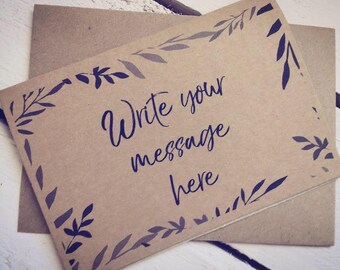 Write your
message
here